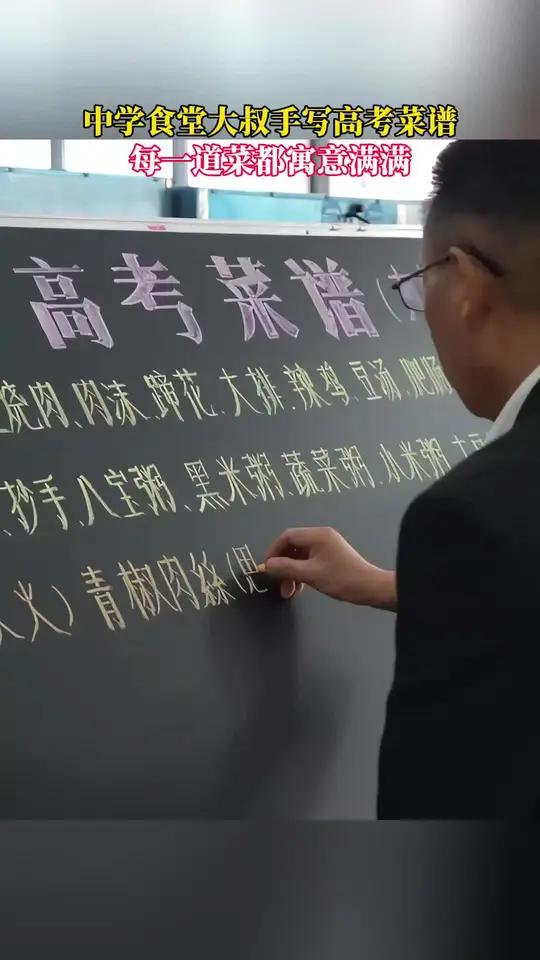 中学食堂大叔手写高考菜谱
每一道菜都寓意满满
高考菜谱(
烧肉、肉沫、蹄花、大排、辣鸡、豆汤、肥肠
、抄手、八宝粥、黑米粥、蔬菜粥、小米粥、
火)青椒肉絲(思